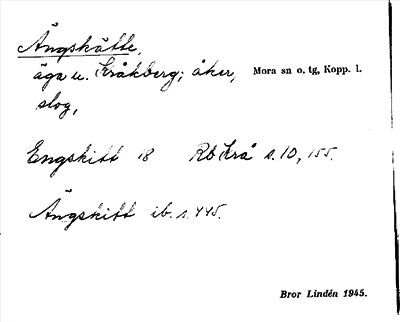 Ängskätte,
äga u. Kråkberg; åker, Mora sn o. tg, Kopp. l.
slog,
Engskitt 18 Rb Krå s. 10, 155.
Ängskitt ib. s. 445.
Bror Lindén 1945.